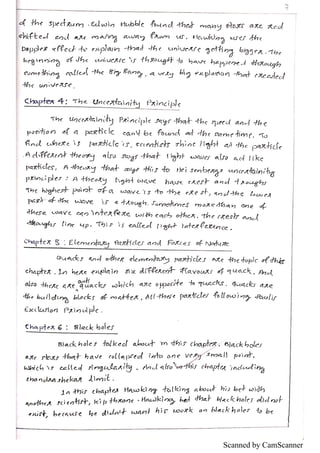 of the spectrum. Edwin Hubble found that many stars are red
shifted and are moving away from us. Hawking uses the
Doppler effect to explain that the universe getting bigger. The
beginning of the universe is thought to have happened through
something called the Big Bang, a very big explosion that created
the universe.
Chapter 4: The Uncertainity Principle
The Uncertainity Principle says that the speed and the
position of a particle can't be found at the same time. To
find where is particle is, scientists shine light at the particle
A different theory also says that light waves also act like
particles. A theory that says this is Heisenberg's uncertainity
principles: A theory light wave have crest and troughs
The highest point of a wave is the crest, and the lower
part of the wave is a trough. Sometimes more than one of
these wave can interfere with each other. The crests and
troughs line up. This is called light interference.
Chapter 5: Elementary Particles and Forces of Nature
Quacks and other elementary particles are the topic of this
chapter. In here explain six different flavours of quack. And
also there are anti quacks which are opposite to quacks. Quacks are
the building blocks of matter. All those particles following Paulis
Exclusion Principle.
Chapter 6: Black holes
Black holes talked about in this chapter. Black holes
are stars that have collapsed into one very small point.
which is called singularity. And also this chapter including
chandra shekar limit.
In this chapter Hawking talking about his bet with
another scientist, kip throne. Hawking bet that black holes did not
exist, because he didn't want his work on black holes to be
Scanned by CamScanner